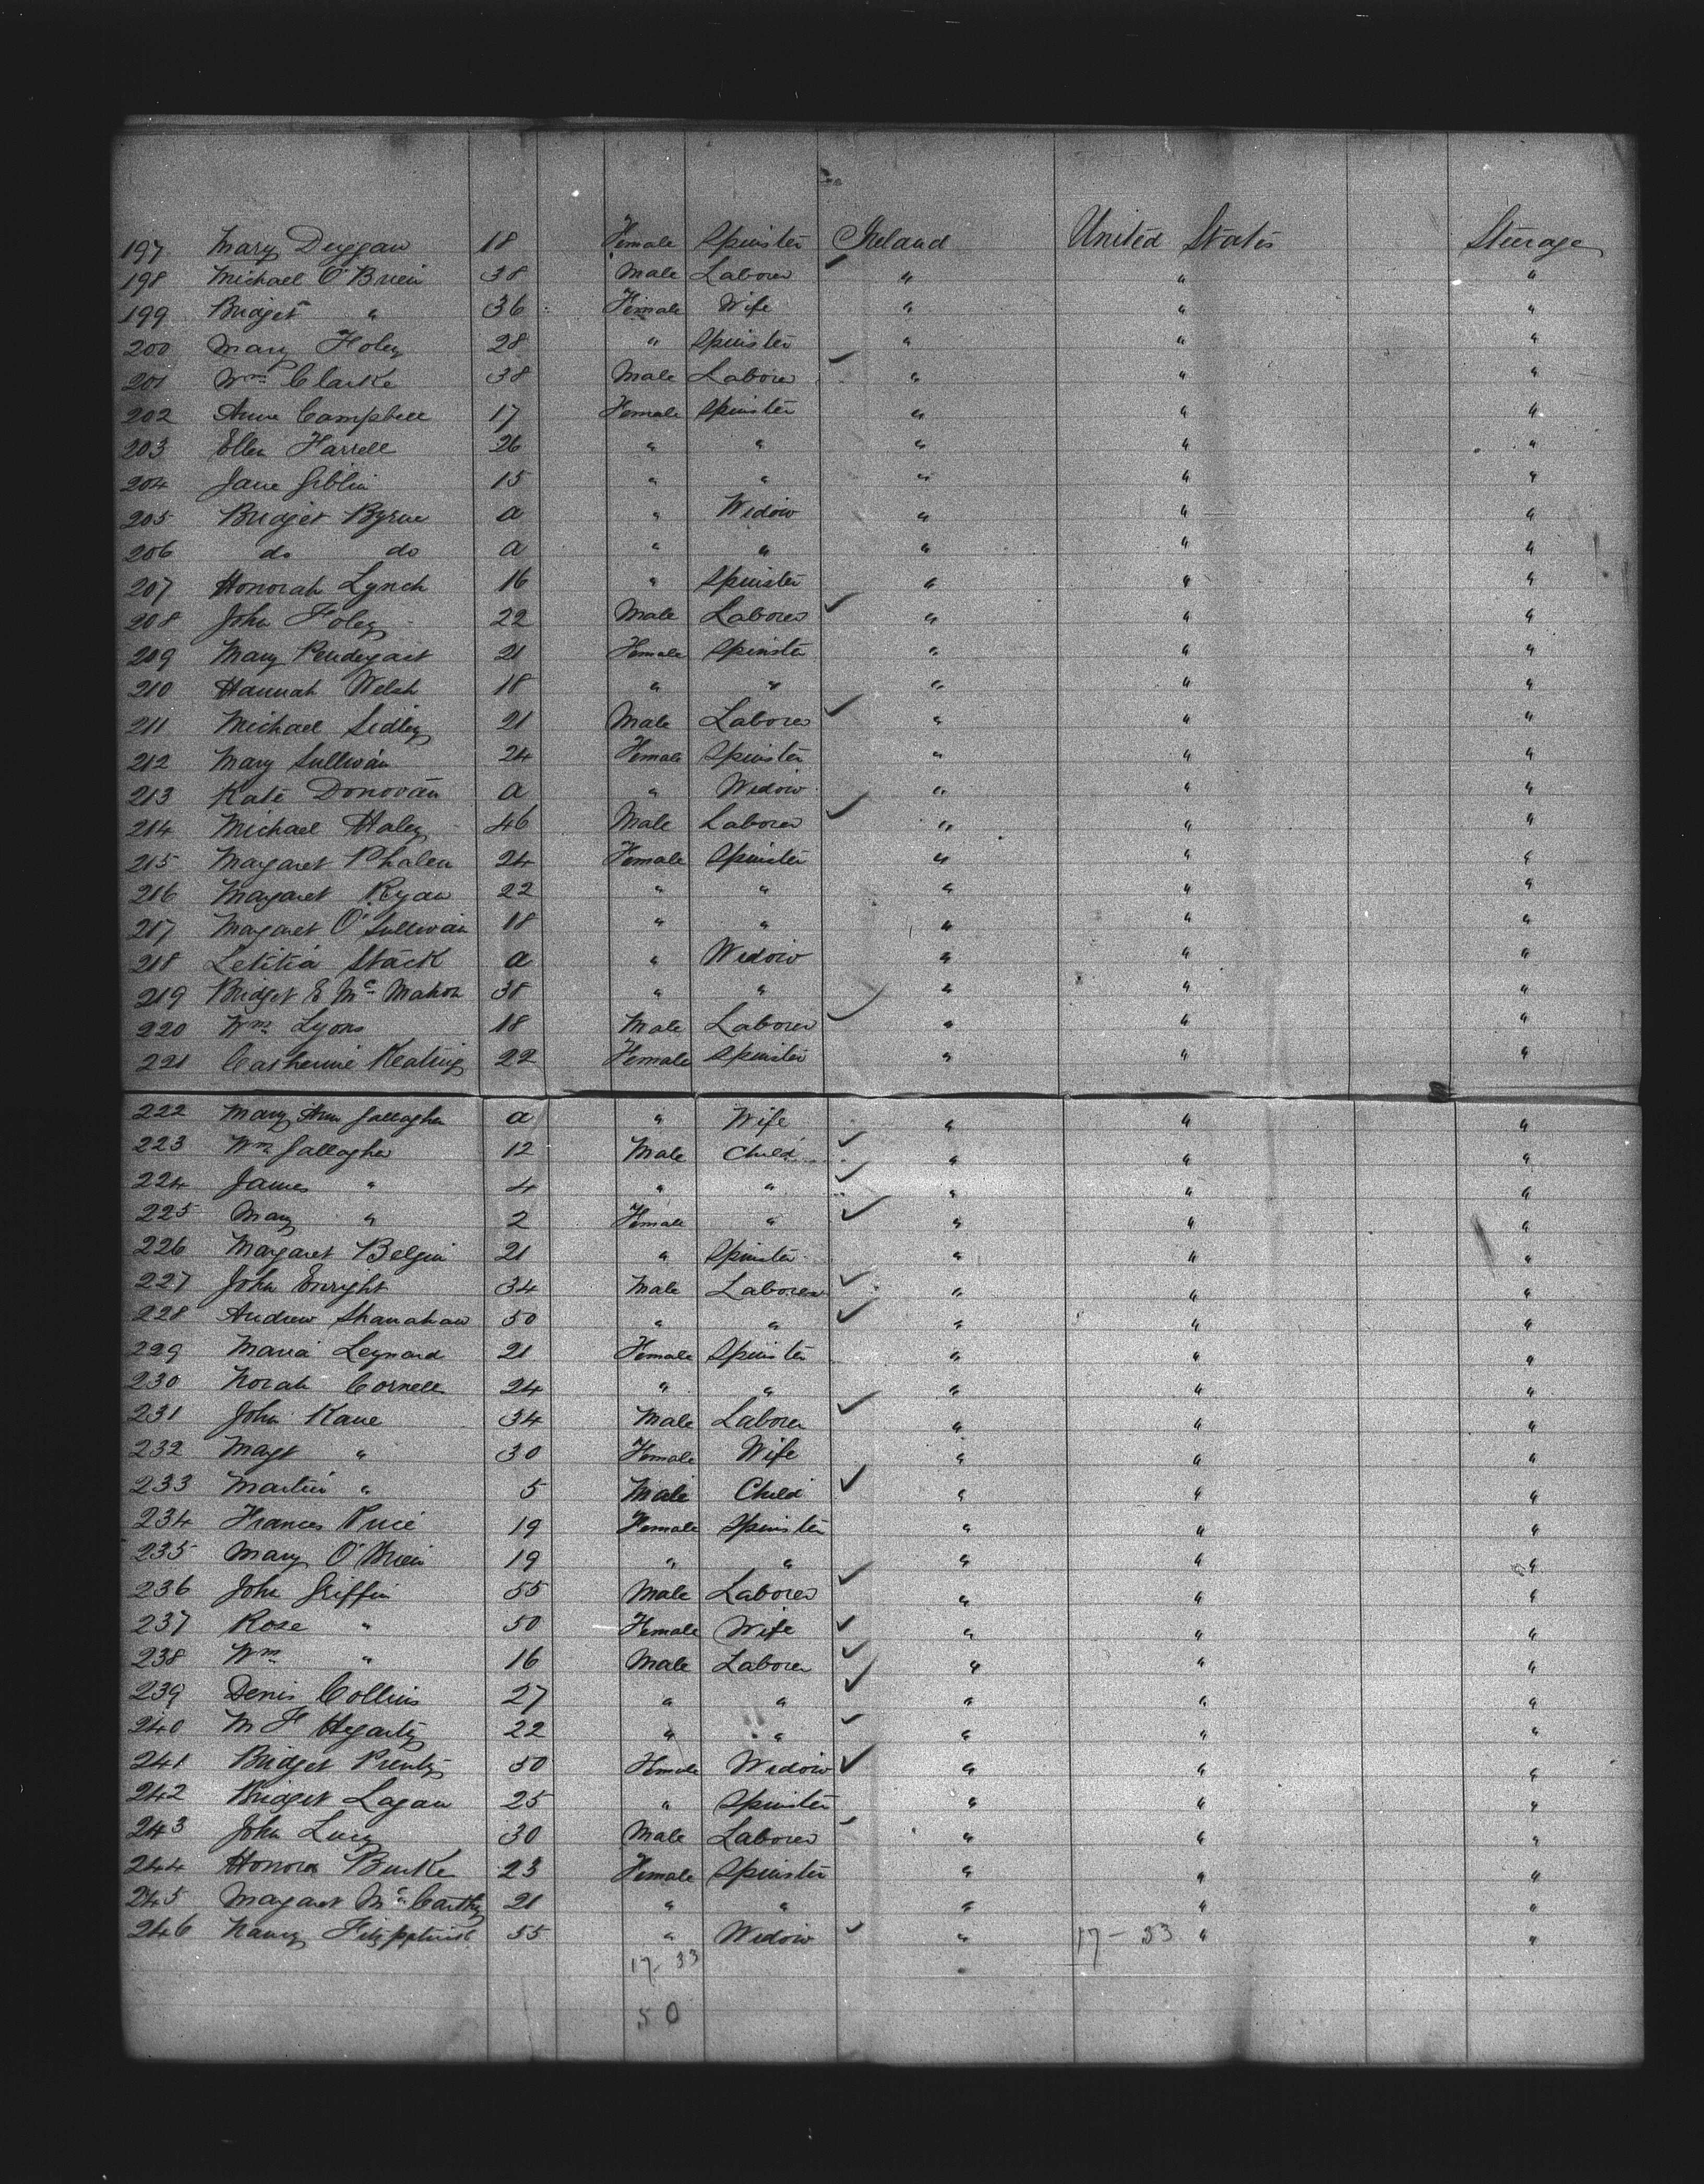 197 Mary Duggan 18 Female Spinster Ireland United States Steerage
198 Michael O'Brien 38 Male Laborer " " "
199 Bridget " 36 Female Wife " " "
200 Mary Foley 28 " Spinster " " "
201 Wm Clarke 38 Male Laborer " " "
202 Anne Campbell 17 Female Spinster " " "
203 Ellen Farrell 26 " " " " "
204 Jane Giblin 15 " " " " "
205 Bridget Byrne a " Widow " " "
206 do do a " " " " "
207 Honorah Lynch 16 " Spinster " " "
208 John Foley 22 Male Laborer " " "
209 Mary Pendergast 21 Female Spinster " " "
210 Hannah Welsh 18 " " " " "
211 Michael Sidley 21 Male Laborer " " "
212 Mary Sullivan 24 Female Spinster " " "
213 Kate Donovan a " Widow " " "
214 Michael Haley 46 Male Laborer " " "
215 Margaret Phalen 24 Female Spinster " " "
216 Margaret Ryan 22 " " " " "
217 Margaret O'Sullivan 18 " " " " "
218 Letitia Stack a " Widow " " "
219 Bridget E McMahon 38 " " " " "
220 Wm Lyons 18 Male Laborer " " "
221 Catherine Keating 22 Female Spinster " " "
222 Mary Ann Gallagher a " Wife " " "
223 Wm Gallagher 12 Male Child " " "
224 James " 4 " " " " "
225 Mary " 2 Female " " " "
226 Margaret Belgin 21 " Spinster " " "
227 John Enright 34 Male Laborer " " "
228 Andrew Shanahan 50 " " " " "
229 Maria Leynard 21 Female Spinster " " "
230 Norah Cornell 24 " " " " "
231 John Kane 34 Male Laborer " " "
232 Magt " 30 Female Wife " " "
233 Martin " 5 Male Child " " "
234 Frances Price 19 Female Spinster " " "
235 Mary O'Brien 19 " " " " "
236 John Griffin 55 Male Laborer " " "
237 Rose " 50 Female Wife " " "
238 Wm " 16 Male Laborer " " "
239 Denis Collins 27 " " " " "
240 M F Hegarty 22 " " " " "
241 Bridget Prenty 50 Female Widow " " "
242 Bridget Lagan 25 " Spinster " " "
243 John Lucy 30 Male Laborer " " "
244 Honora Burke 23 Female Spinster " " "
245 Margaret McCarthy 21 " " " " "
246 Nancy 55 " Widow " 17-33 " "
17-33
50